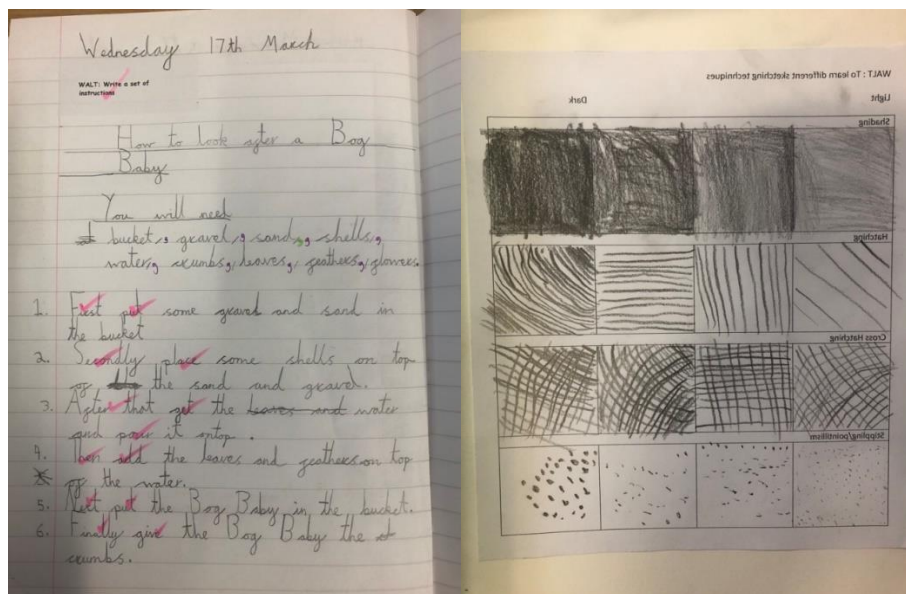 Wednesday 17th March
WALT: Write a set of
instructions
How to look after a Bog
Baby
You will need
bucket, gravel, sand, shells,
water, crumbs, leaves, feathers, flowers.
1. First put some gravel and sand in
the bucket
2. Secondly place some shells on top
of the sand and gravel.
3. After that get the leaves and water
and pour it ontop.
4. Then add the leaves and feathers on top
of the water.
5. Next put the Bog Baby in the bucket.
6. Finally give the Bog Baby the
crumbs.
WALT: To learn different sketching techniques
Light Dark
Shading
Hatching
Cross Hatching
Stippling/pointilism